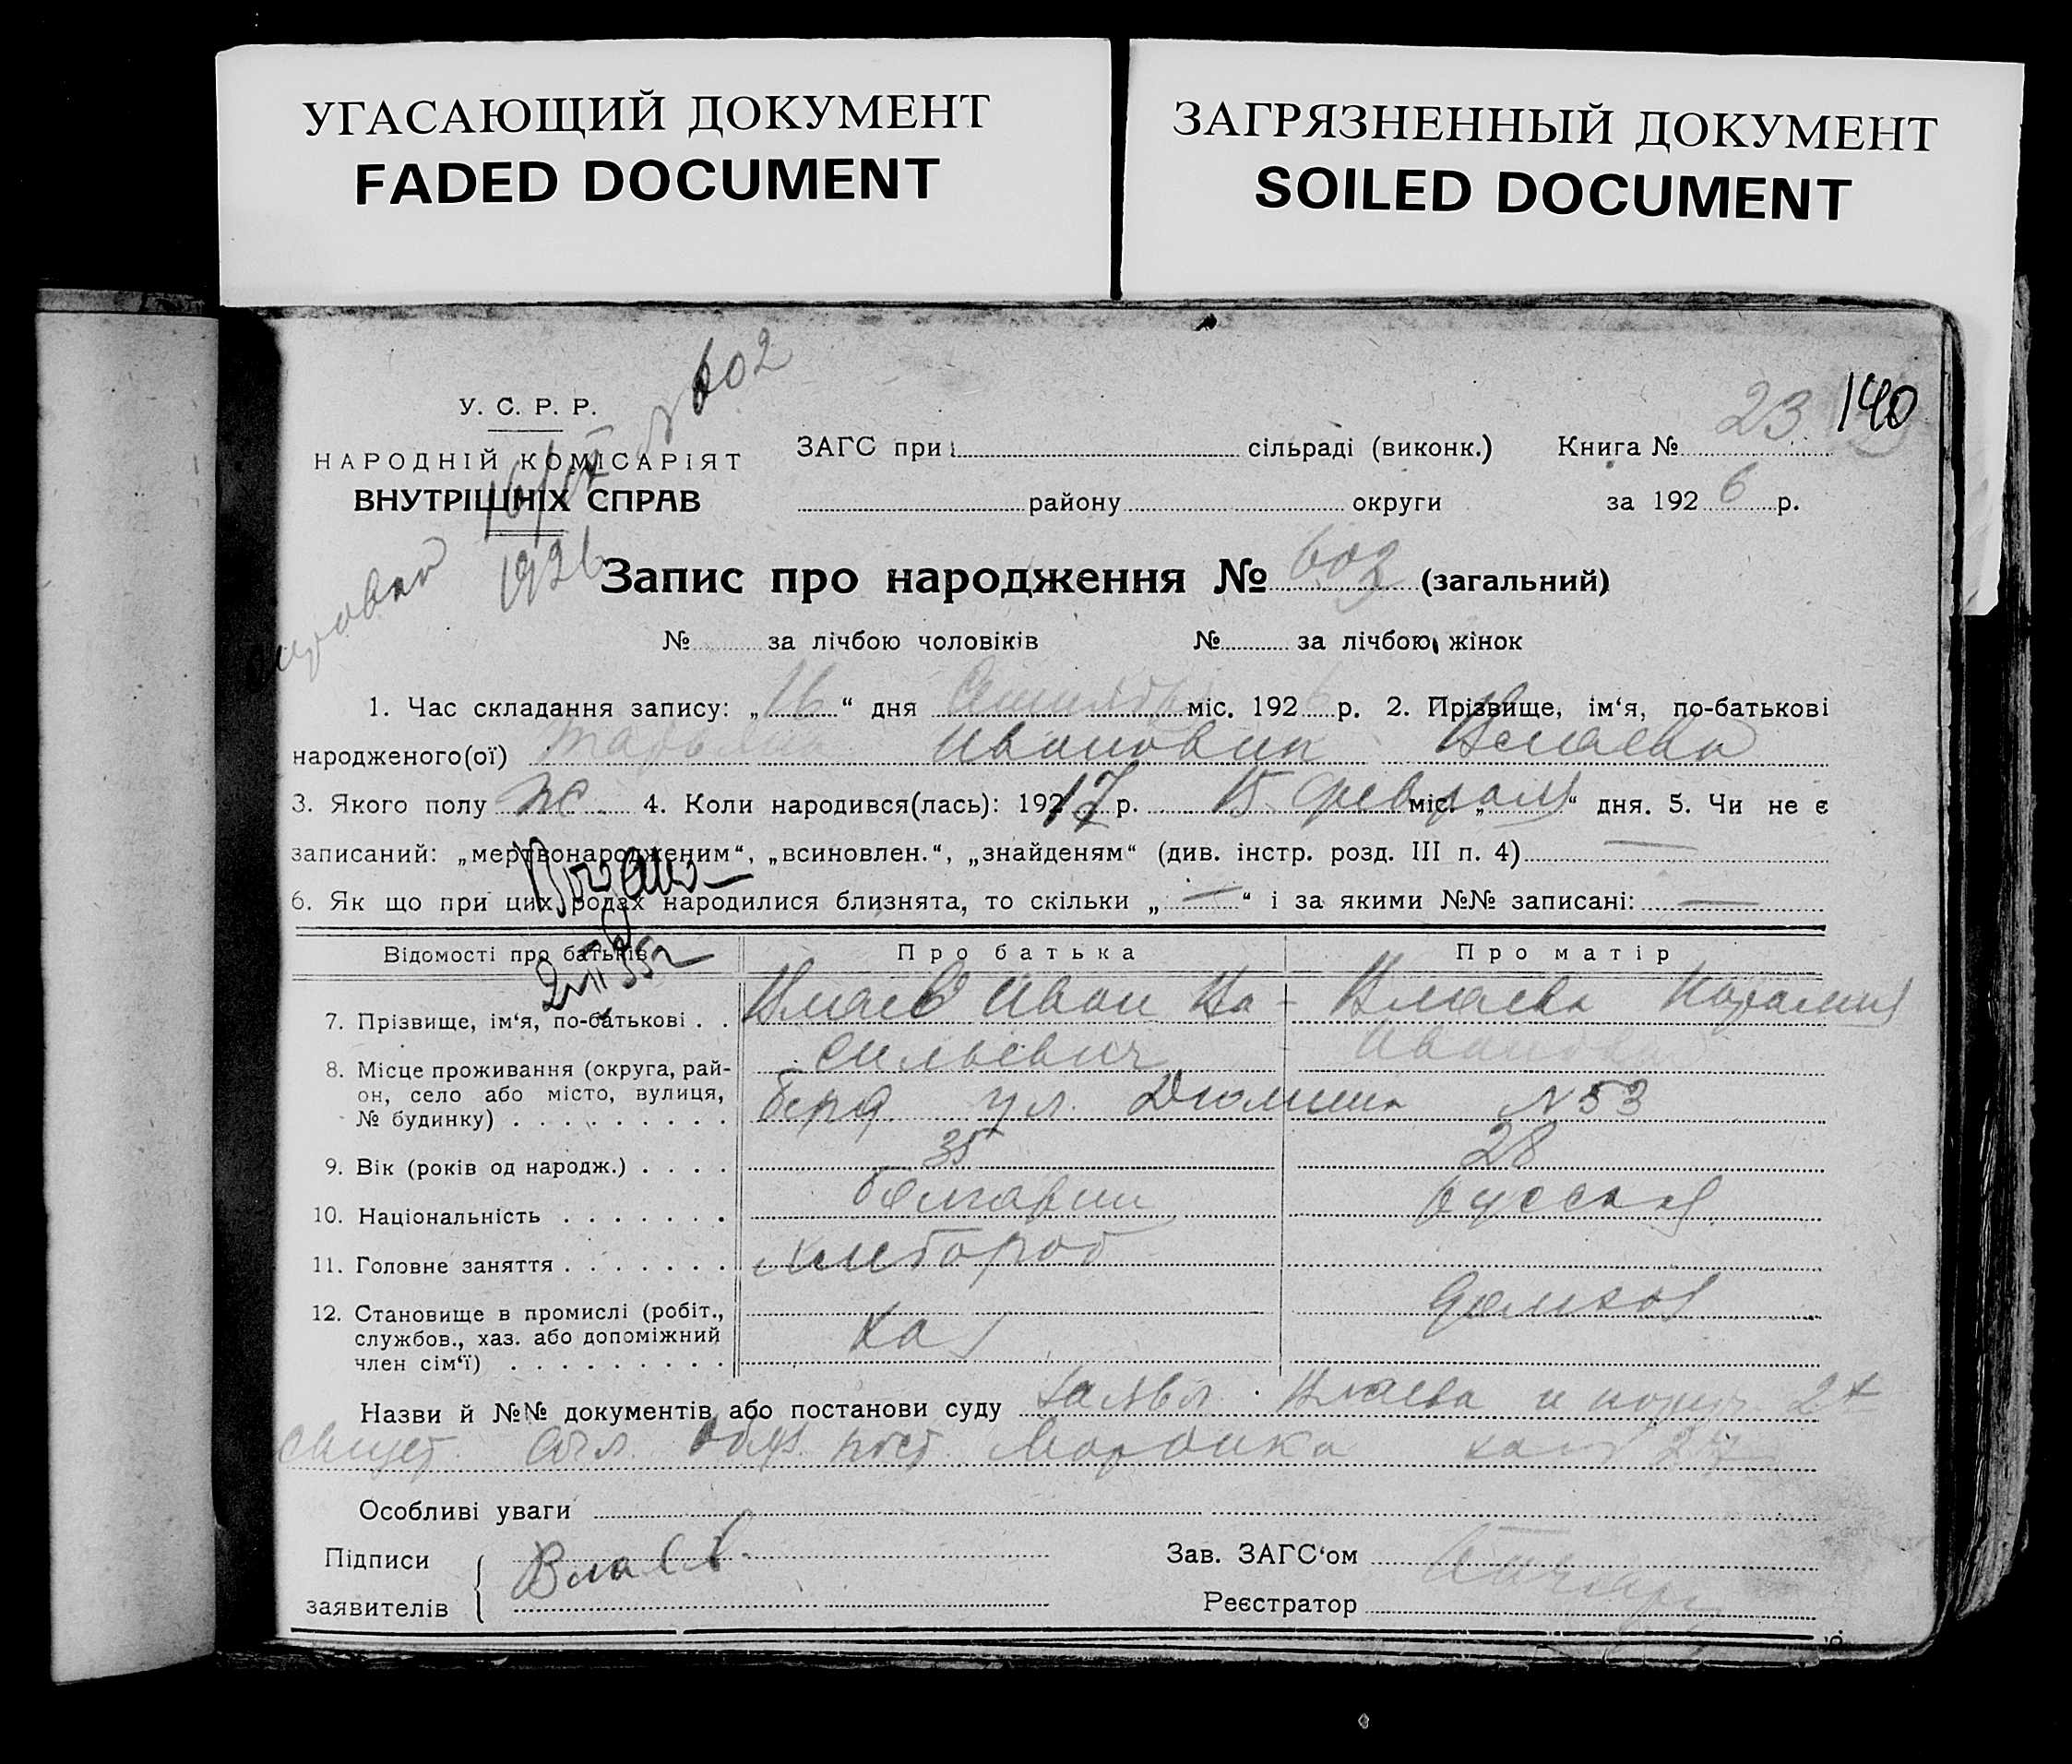 УГАСАЮЩИЙ ДОКУМЕНТ
FADED DOCUMENT
ЗАГРЯЗНЕННЫЙ ДОКУМЕНТ
SOILED DOCUMENT
№ 602
23 140
У. С. Р. Р.
НАРОДНІЙ КОМІСАРІЯТ
ВНУТРІШНІХ СПРАВ
16/IX
1926
ЗАГС при сільраді (виконк.) Книга №
району округи за 192 6 р.
Запис про народження № 603 (загальний)
№ за лічбою чоловіків № за лічбою жінок
1. Час складання запису: „ 16 “ дня Сентября міс. 192 6 р. 2. Прізвище, ім‘я, по-батькові
народженого(ої) Татьяна Ивановна Влаева
3. Якого полу ж. 4. Коли народився(лась): 192 17 р. 15 февраля міс. „ “ дня. 5. Чи не є
записаний: „мертвонародженим“, „всиновлен.“, „знайденям“ (див. інстр. розд. III п. 4) —
6. Як що при цих родах народилися близнята, то скільки „ — “ і за якими №№ записані: —
Відомості про батьків Про батька Про матір
7. Прізвище, ім‘я, по-батькові Влаев Иван Ва- Влаева
сильевич Ивановна
8. Місце проживання (округа, рай-
он, село або місто, вулиця,
№ будинку) берд ул. Дюмина № 53
9. Вік (років од народж.) 35 28
10. Національність болгарин русская
11. Головне заняття хлебороб
12. Становище в промислі (робіт.,
службов., хаз. або допоміжний
член сім‘ї) хаз домхоз
Назви й №№ документів або постанови суду заявл. Влаева и 2х
свидет.
Особливі уваги
Підписи
заявителів Влаев
Зав. ЗАГС‘ом
Реєстратор